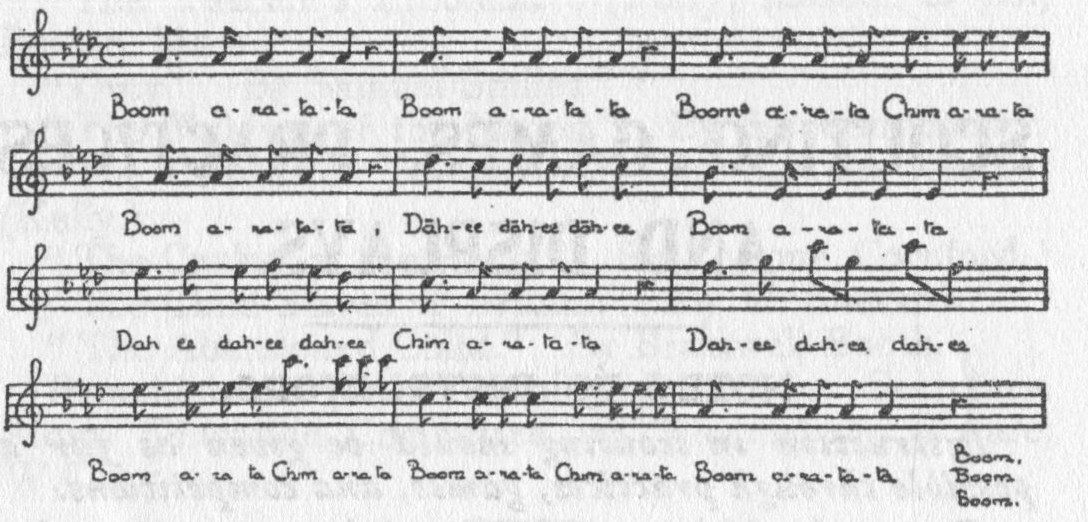 Boom a-ra-ta-ta Boom a-ra-ta-ta Boom a-ra-ta Chim a-ra-ta
Boom a-ra-ta-ta, Däh-ee däh-ee däh-ee Boom a-ra-ta-ta
Dah ee dah-ee dah-ee Chim a-ra-ta-ta Dah-ee dah-ee dah-ee
Boom a-ra ta Chim a-ra-ta Boom a-ra-ta Chim a-ra-ta Boom a-ra-ta-ta Boom.
Boom
Boom.